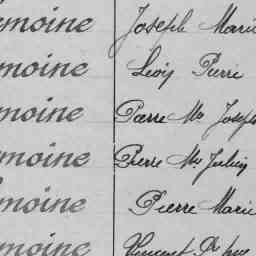 moine Joseph Marie
moine Louis Pierre
moine Pierre Me Joseph
moine Pierre Me Julien
moine Pierre Marie
moine Vincent